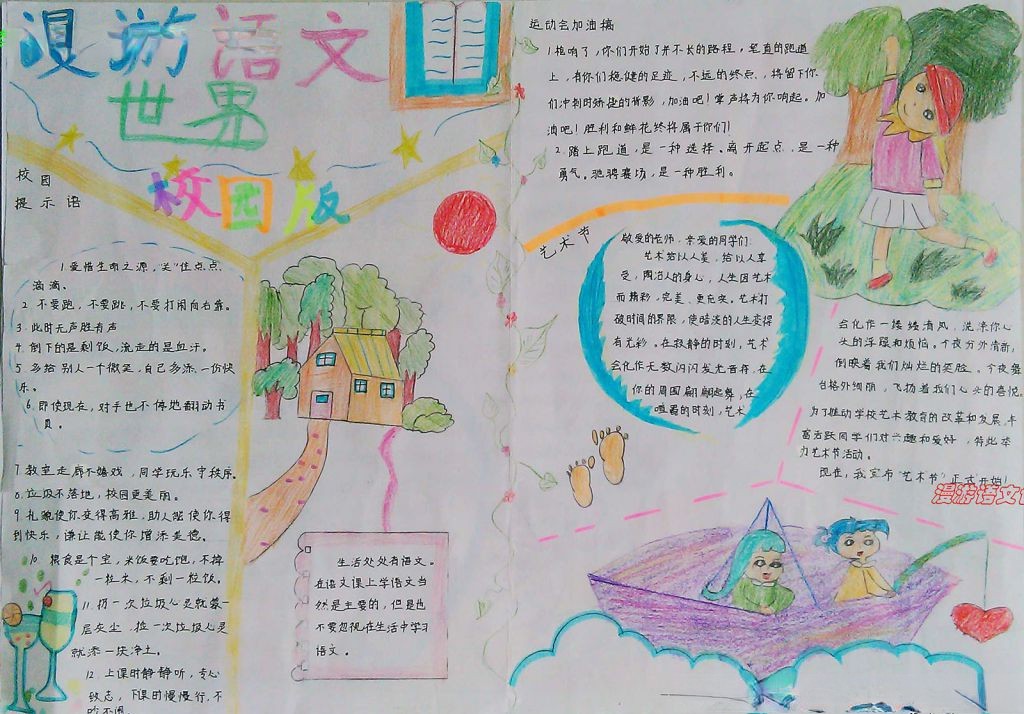 漫游语文
世界
校园版
校园
提示语
1.爱惜生命之源,关"住点点
滴滴。
2.不要跑,不要跳,不要打闹向右靠。
3.此时无声胜有声
4.倒下的是剩饭,流走的是血汗。
5.多给别人一个微笑,自己多添一份快
乐。
6.即使现在,对手也不停地翻动书
页。
7.教室走廊不嬉戏,同学玩乐守秩序。
8.垃圾不落地,校园更美丽。
9.礼貌使你变得高雅,助人能使你得
到快乐,谦让能使你增添美德。
10.粮食是个宝,米饭要吃饱,不掉
一粒米,不剩一粒饭。
11.扔一次垃圾心灵就蒙一
层灰尘,捡一次垃圾心灵
就添一块净土。
12.上课时静静听,专心
致志,下课时慢慢行,不
吵不闹
生活处处有语文。
在语文课上学语文当
然是主要的,但是也
不要忽视在生活中学习
语文。
运动会加油搞
1.枪响了,你们开始了并不长的路程,笔直的跑道
上,有你们稳健的足迹,不远的终点,将留下你
们冲刺时矫健的背影,加油吧!掌声将为你响起。加
油吧!胜利和鲜花终将属于你们!
2.踏上跑道,是一种选择。离开起点,是一种
勇气。驰骋赛场,是一种胜利。
艺术节
敬爱的老师,亲爱的同学们:
艺术给以人美,给以人享
受,陶冶人的身心,人生因艺术
而精彩,完美、更充实。艺术打
破时间的界限,使暗淡的人生变得
有光彩。在寂静的时刻,艺术
会化作无数闪闪发光音符,在
你的周围翩翩起舞,在
喧嚣的时刻,艺术
会化作一缕缕清风,洗涤你心
头的浮躁和烦恼。今夜分外清新,
倒映着我们灿烂的笑脸。今夜舞
台格外绚丽,飞扬着我们心头的喜悦。
为了推动学校艺术教育的改革和发展,丰
富活跃同学们对兴趣和爱好,特此举
力艺术节活动。
现在,我宣布"艺术节"正式开始!
漫游语文